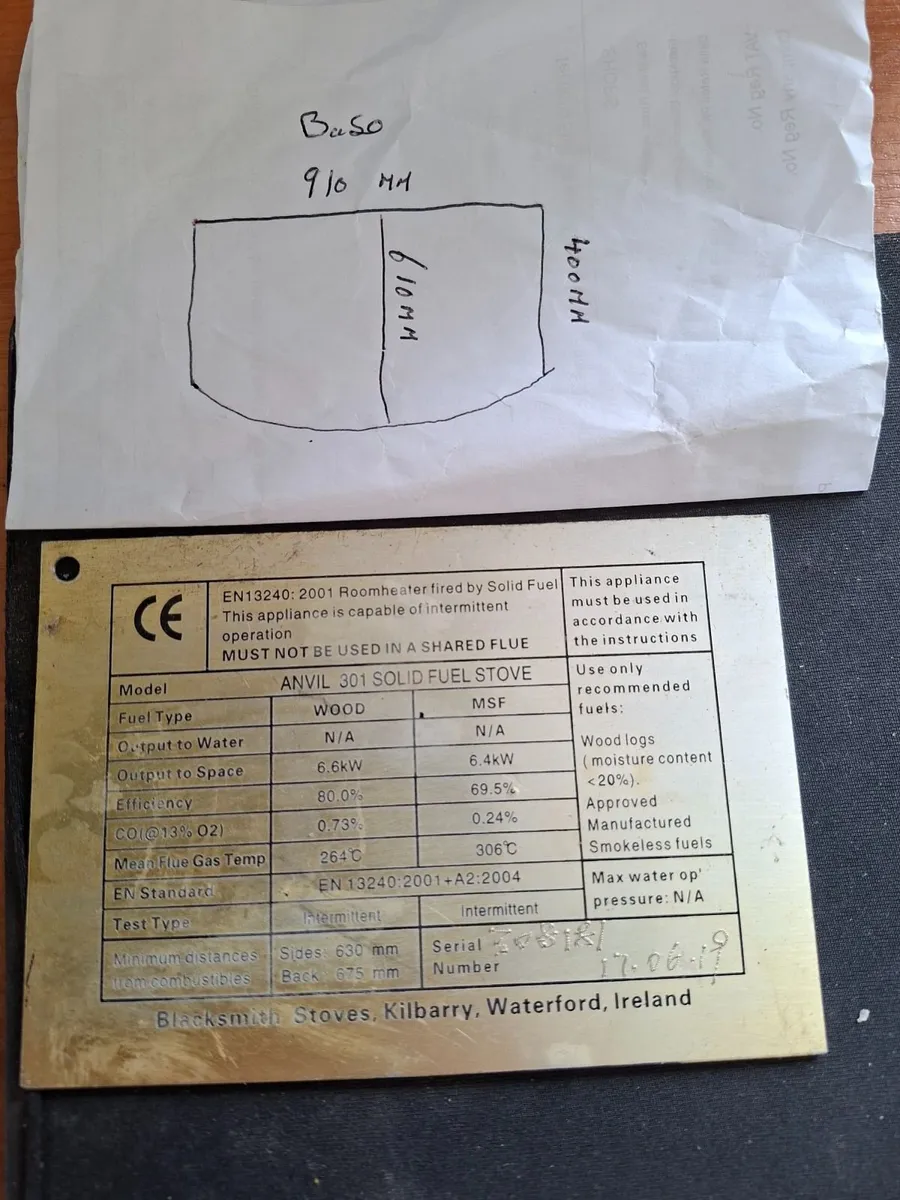 BaSO
910 MM
400MM
610MM
CE
EN13240: 2001 Roomheater fired by Solid Fuel
This appliance is capable of intermittent
operation
MUST NOT BE USED IN A SHARED FLUE
This appliance
must be used in
accordance with
the instructions
Model ANVIL 301 SOLID FUEL STOVE
Fuel Type WOOD MSF
Output to Water N/A N/A
Output to Space 6.6kW 6.4kW
Efficiency 80.0% 69.5%
CO(@13% O2) 0.73% 0.24%
Mean Flue Gas Temp 264°C 306°C
EN Standard EN 13240:2001+A2:2004
Test Type Intermittent Intermittent
Minimum distances
from combustibles
Sides: 630 mm
Back: 675 mm
Use only
recommended
fuels:
Wood logs
( moisture content
<20%).
Approved
Manufactured
Smokeless fuels
Max water op'
pressure: N/A
Serial
Number
17.06.19
Blacksmith Stoves, Kilbarry, Waterford, Ireland